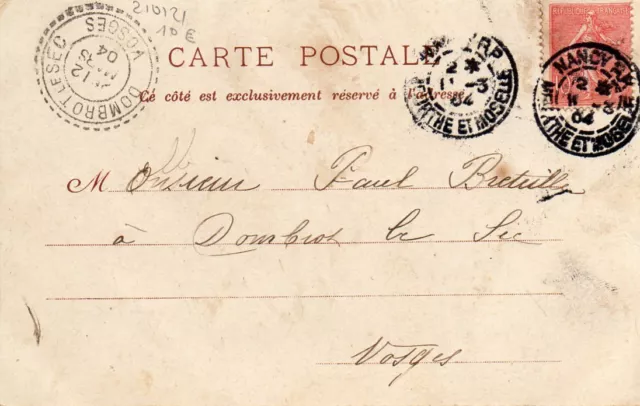 210121
10 €
DOMBROT LE SEC
VOSGES
12
MARS
04
CARTE POSTALE
Ce côté est exclusivement réservé à l'adresse
NANCY R.P.
2
11 - 3
04
MEURTHE ET MOSELLE
NANCY R.P.
2
11 - 3
04
MEURTHE ET MOSELLE
Monsieur Paul Breteille
à Dombrot le Sec
Vosges